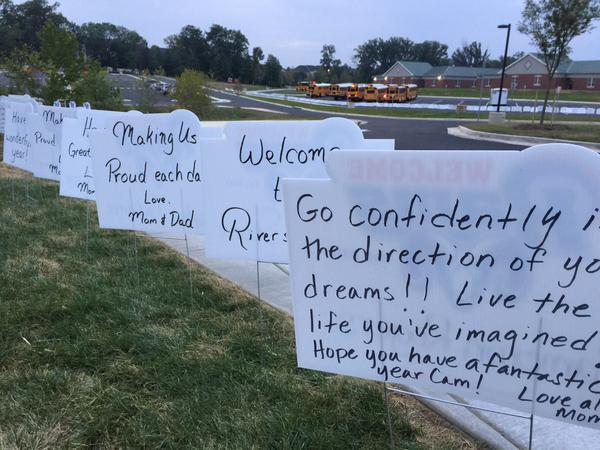 Have
wonderful
year!
Proud
Great
Making Us
Proud each da
Love,
Mom & Dad
Welcome
t
Rivers
WELCOME
Go confidently i
the direction of yo
dreams!! Live the
life you've imagined
Hope you have a fantastic
year Cam!
Love al
Mom